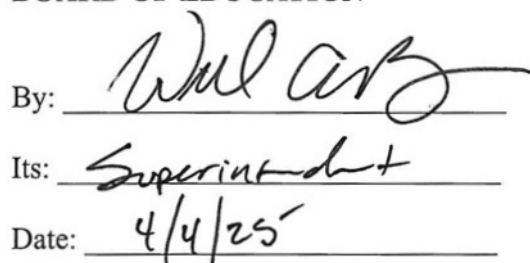 BOARD OF EDUCATION
By:
Its: Superintendent
Date: 4/4/25